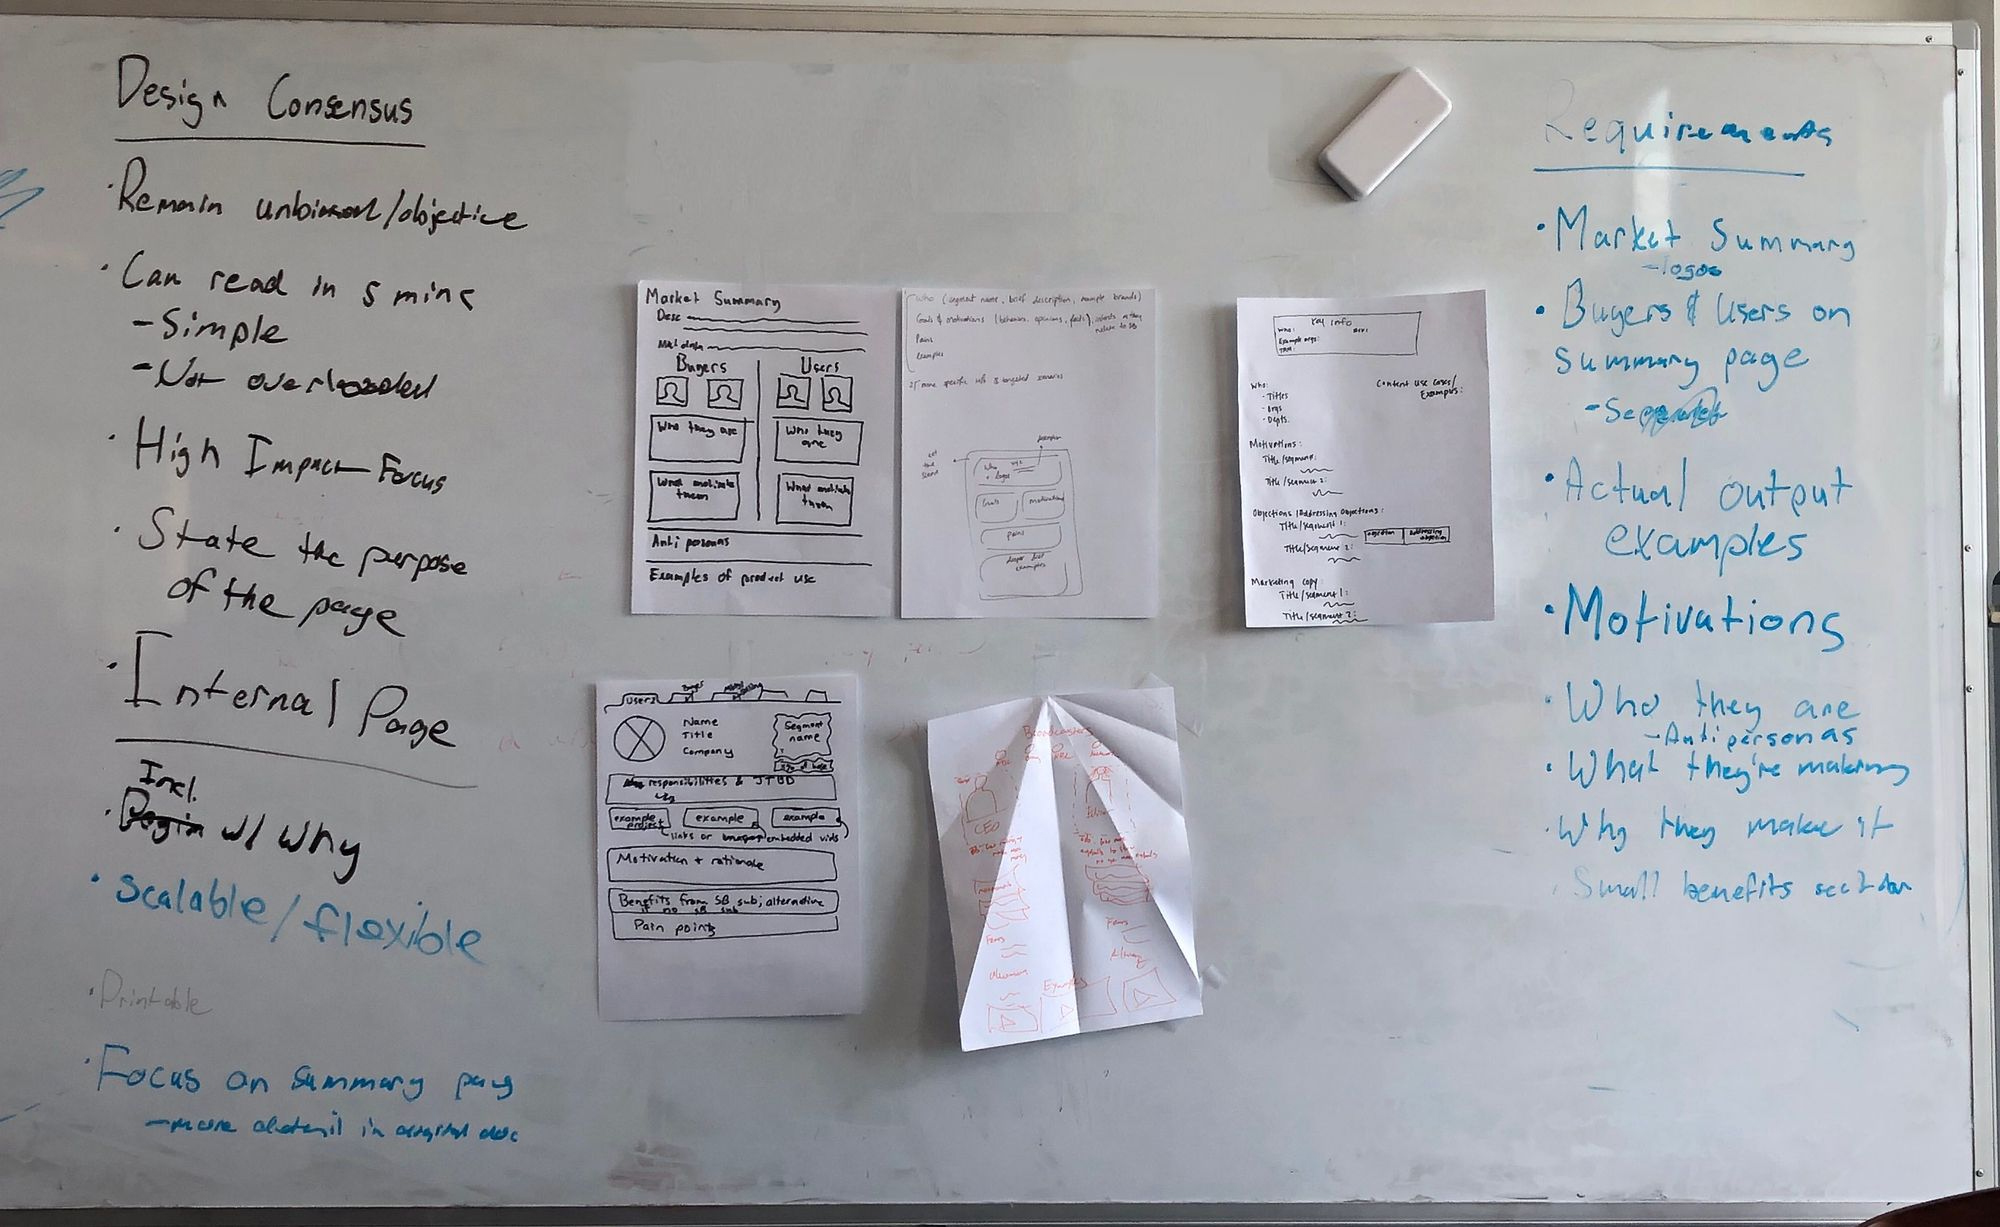 Design Consensus
· Remain unbiased/objective
· Can read in 5 mins
- Simple
- Not overloaded
· High Impact Focus
· State the purpose
of the page
· Internal Page
Incl.
· Begin w/ Why
· Scalable/flexible
· Printable
· Focus on summary page
- more detail in original doc
Market Summary
Desc
Buyers Users
Who they are
Who they
are
What motivate
them
What motivate
them
Anti personas
Examples of product use
Who (segment name, brief description, example brands)
Goals & motivations (behaviors, opinions, facts), interests as they
relate to SB
Pains
Examples
more specific info & targeted scenarios
set
the
scene
Who
logos
Goals
motivations
pains
examples
Key info
Who:
Example orgs:
Who:
- Titles
- Orgs
- Depts.
Content use cases/
Examples:
Motivations:
Title/segment:
Title/segment 2:
Objections/Addressing Objections:
Title/segment 1:
objection addressing
objection
Title/segment 2:
Marketing copy
Title/segment 1:
Title/segment 2:
Users
Name
Title
Company
Segment
name
responsibilities & JTBD
example
project
example
example
links or embedded vids
Motivation + rationale
Benefits from SB sub; alternative
if no SB sub
Pain points
Broadcasters
CEO
Editor
Fears
Fears
Examples
Requirements
· Market Summary
- logos
· Buyers & Users on
summary page
- Separate
· Actual output
examples
· Motivations
· Who they are
- Antipersonas
· What they're making
· Why they make it
· Small benefits section